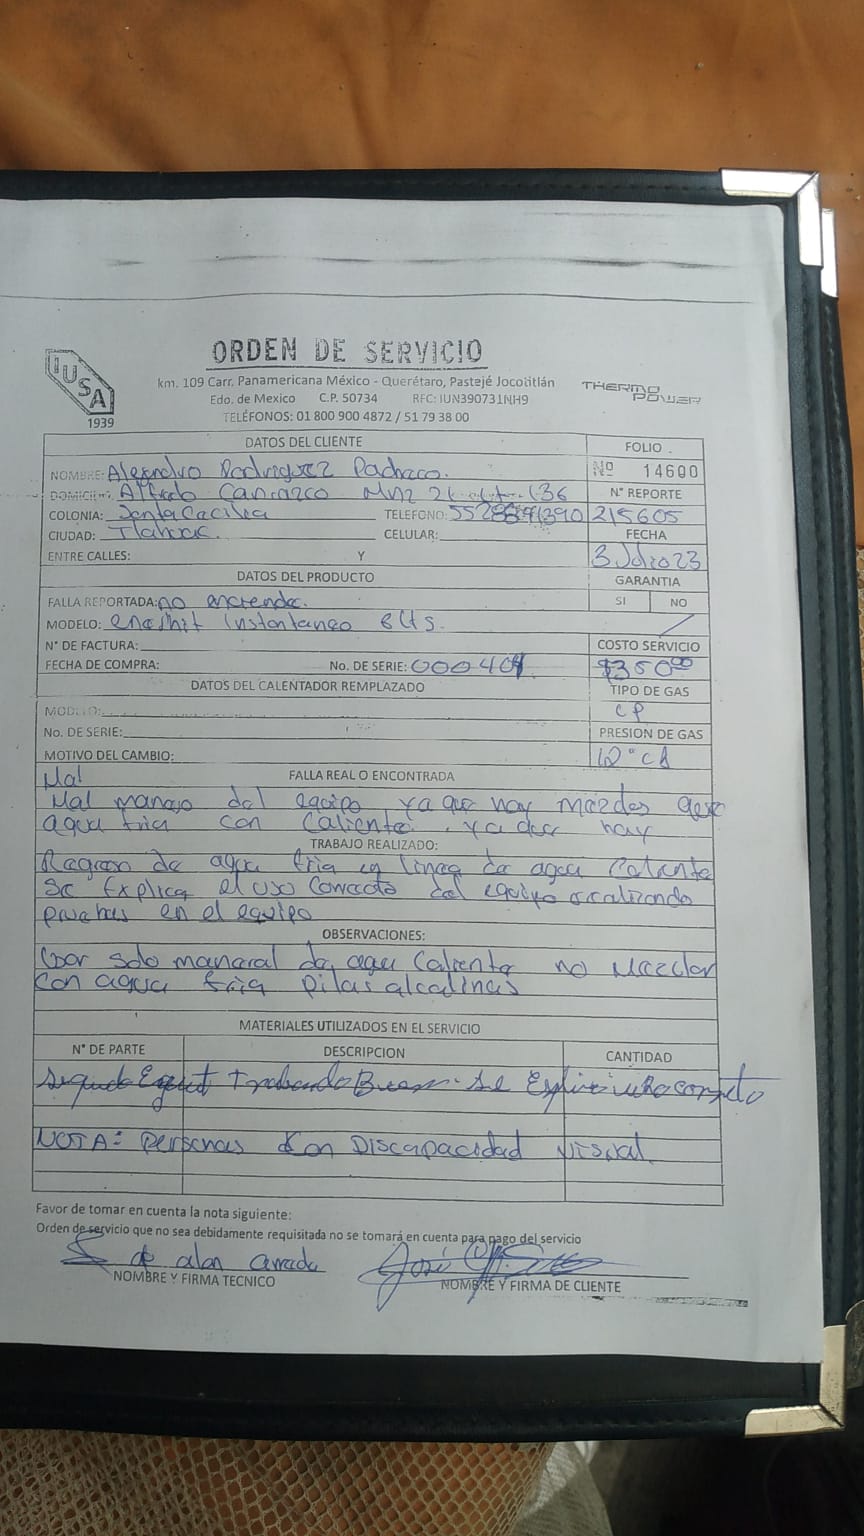 IUSA
1939
ORDEN DE SERVICIO
km. 109 Carr. Panamericana México - Querétaro, Pastejé Jocotitlán
Edo. de Mexico C.P. 50734 RFC: IUN390731NH9
TELÉFONOS: 01 800 900 4872 / 51 79 38 00
THERMO POWER
DATOS DEL CLIENTE FOLIO
NOMBRE: Alejandro Rodriguez Pacheco. Nº 14600
DOMICILIO: Alfredo Carrazco Mnz 136 N° REPORTE
COLONIA: Santa Cecilia TELEFONO: 215605
CIUDAD: Tlahuac. CELULAR: FECHA
ENTRE CALLES: Y 3 Julio 23
DATOS DEL PRODUCTO GARANTIA
FALLA REPORTADA: no enciende. SI NO
MODELO: instantaneo 6Lts.
N° DE FACTURA: COSTO SERVICIO
FECHA DE COMPRA: No. DE SERIE: $350.00
DATOS DEL CALENTADOR REMPLAZADO TIPO DE GAS
MODELO:
No. DE SERIE: PRESION DE GAS
MOTIVO DEL CAMBIO:
Mal FALLA REAL O ENCONTRADA
Mal manejo del equipo ya que hay
agua fria con caliente. ya que hay
TRABAJO REALIZADO:
Regreso de agua fria en linea de agua Caliente
Se Explica el uso Correcto del equipo realizando
pruebas en el equipo
OBSERVACIONES:
Usar solo maneral de agua Caliente no Mezclar
con agua fria pilas alcalinas
MATERIALES UTILIZADOS EN EL SERVICIO
N° DE PARTE DESCRIPCION CANTIDAD
Trabando
NOTA: Personas con Discapacidad Visual
Favor de tomar en cuenta la nota siguiente:
Orden de servicio que no sea debidamente requisitada no se tomará en cuenta para pago del servicio
alan José
NOMBRE Y FIRMA TECNICO NOMBRE Y FIRMA DE CLIENTE